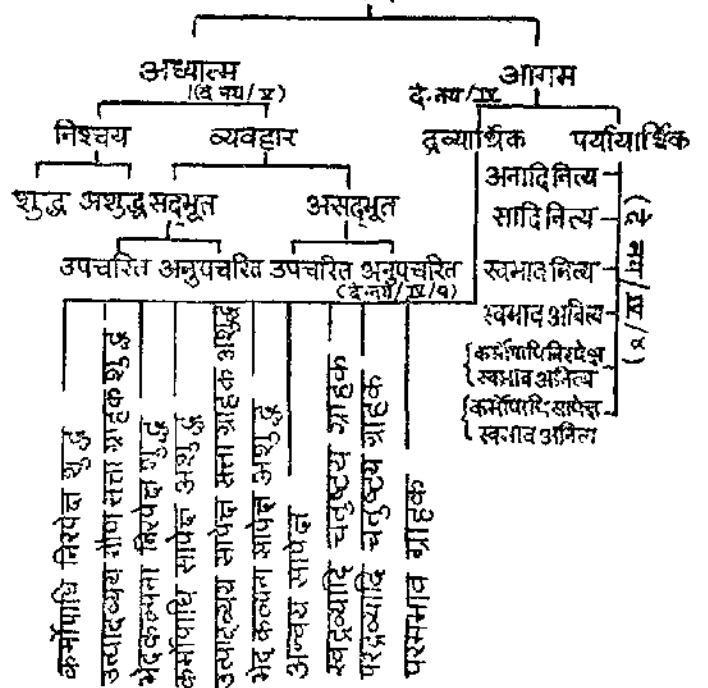 अध्यात्म
(दे नय/V)
आगम
दे. नय/IV
निश्चय व्यवहार
द्रव्यार्थिक पर्यायार्थिक
शुद्ध अशुद्ध सद्भूत असद्भूत
उपचरित अनुपचरित उपचरित अनुपचरित
(दे. नय/IV/१)
अनादि नित्य
सादि नित्य
स्वभाव नित्य
स्वभाव अनित्य
कर्मोपाधि निरपेक्ष
स्वभाव अनित्य
कर्मोपाधि सापेक्ष
स्वभाव अनित्य
कर्मोपाधि निरपेक्ष शुद्ध
उत्पादव्यय गौण सत्ता ग्राहक शुद्ध
भेदकल्पना निरपेक्ष शुद्ध
कर्मोपाधि सापेक्ष अशुद्ध
उत्पादव्यय सापेक्ष सत्ता ग्राहक अशुद्ध
भेद कल्पना सापेक्ष अशुद्ध
अन्वय सापेक्ष
स्वद्रव्यादि चतुष्टय ग्राहक
परद्रव्यादि चतुष्टय ग्राहक
परमभाव ग्राहक